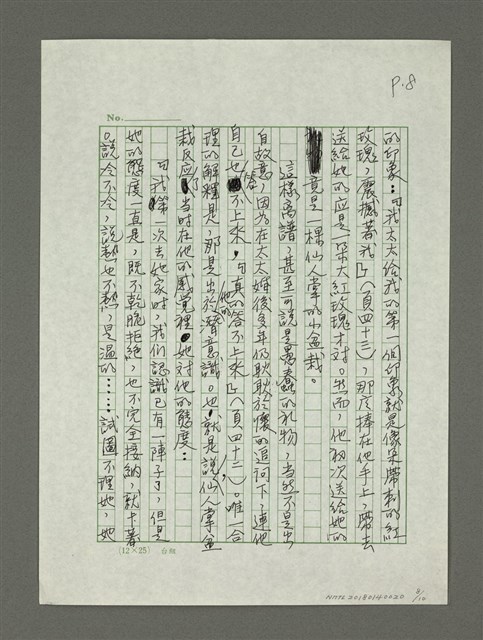 P.8
No.
的印象:「我太太給我的第一個印象就是像朵帶刺的紅
玫瑰,震撼著我」(頁四十三),那應捧在他手上,帶去
送給她的应是一朵大紅玫瑰才对。然而,他初次送給她的
竟是一棵仙人掌的小盆栽。
這樣离譜,甚至可說是愚蠢的礼物,当然不是出
自故意,因為在太太婚後多年仍耿耿於懷的追问下,連他
自己也答不上來,「真的答不上來」(頁四十三)。唯一合
理的解釋是,那是出於他的潛意識。也就是說,仙人掌盆
栽反应了当时在他的感覚裡,她对他的態度:
「我第一次去她家时,我們認識已有一陣子了,但是
她的態度一直是,既不乾脆拒絕,也不完全接納,就卡著
。說冷不冷,說熱也不熱,是溫的……試圖不理她,她
(12×25)
NMTL20180140020
8/10